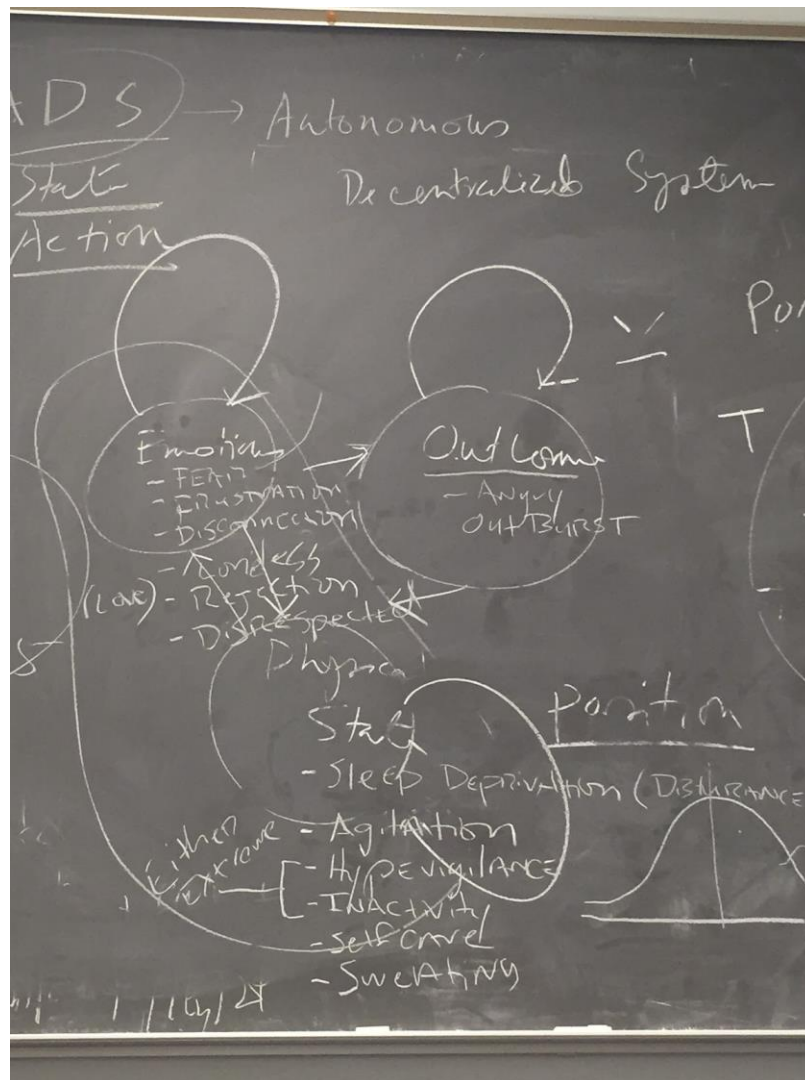 ADS → Autonomous
Decentralized System
State
Action
Emotions
- FEAR
- FRUSTRATION
- DISCONNECCION
- LONELESS
(Love) - REJECTION
- DISRESPECTED
Outcome
- ANGRY
OUTBURST
Por
T
Physical
State
- Sleep DEPRIVATION (DISTURBANCE
- Agitation
- HYPEVIGILANCE
- INACTIVITY
- Self CARE
- SWEATING
Either
extreme
Position